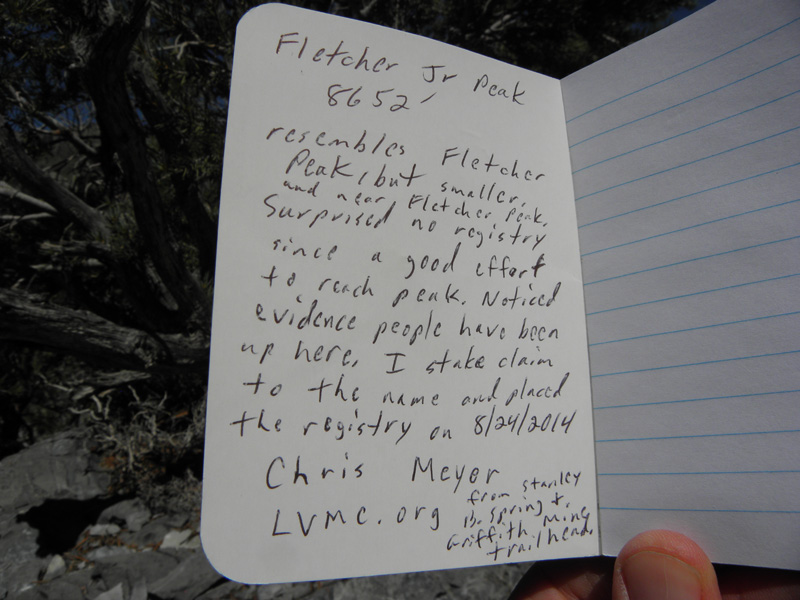 Fletcher Jr Peak
8652'
resembles Fletcher
Peak, but smaller,
and near Fletcher Peak.
Surprised no registry
since a good effort
to reach peak. Noticed
evidence people have been
up here. I stake claim
to the name and placed
the registry on 8/24/2014
Chris Meyer
LVMC.org
from Stanley
B. Spring &
Griffith Mine
trailhead.